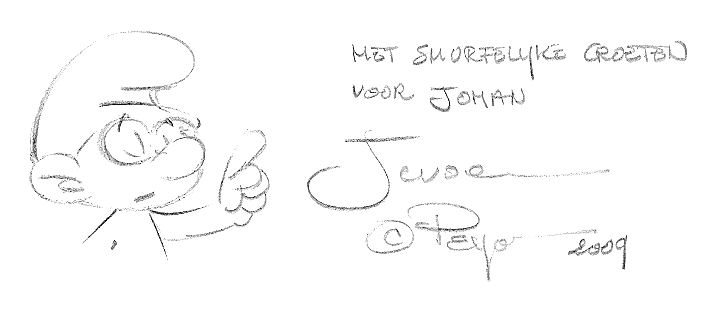 MET SMURFELIJKE GROETEN
VOOR JOHAN
© Peyo 2009